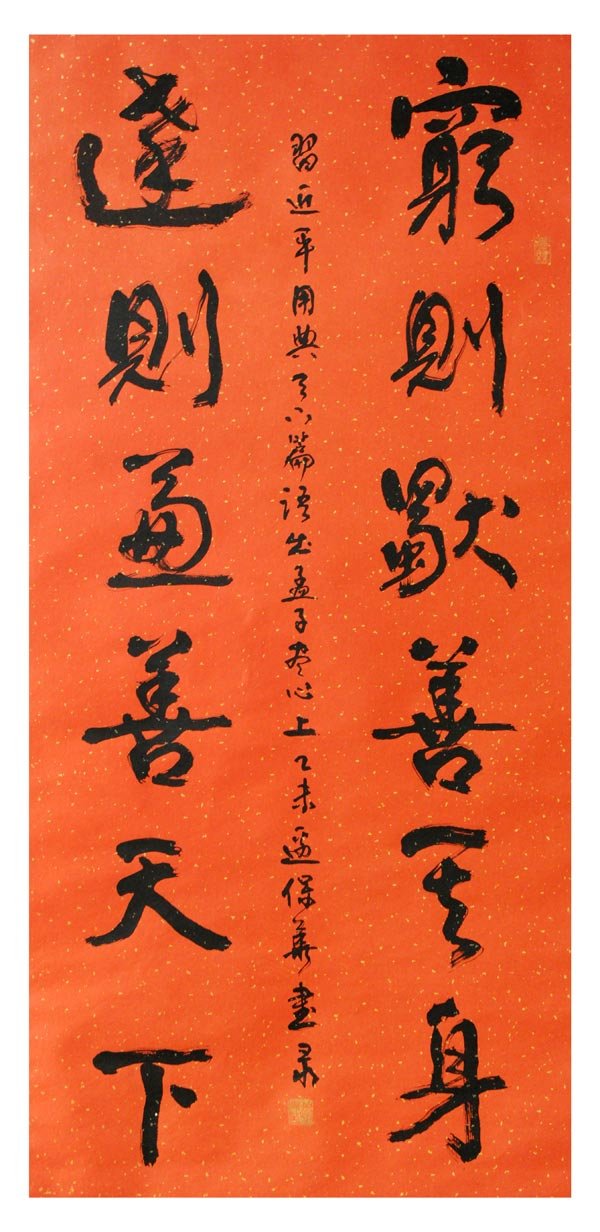 窮則獨善其身
習近平用典天下篇語出孟子盡心上乙未邊保華書录
達則兼善天下